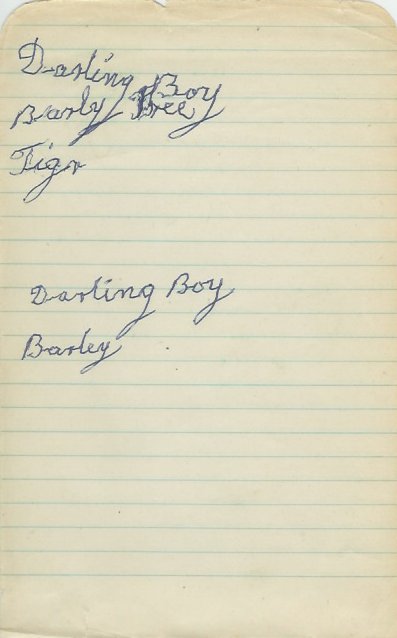 Darling Boy
Barly Tree
Tigr
Darling Boy
Barley